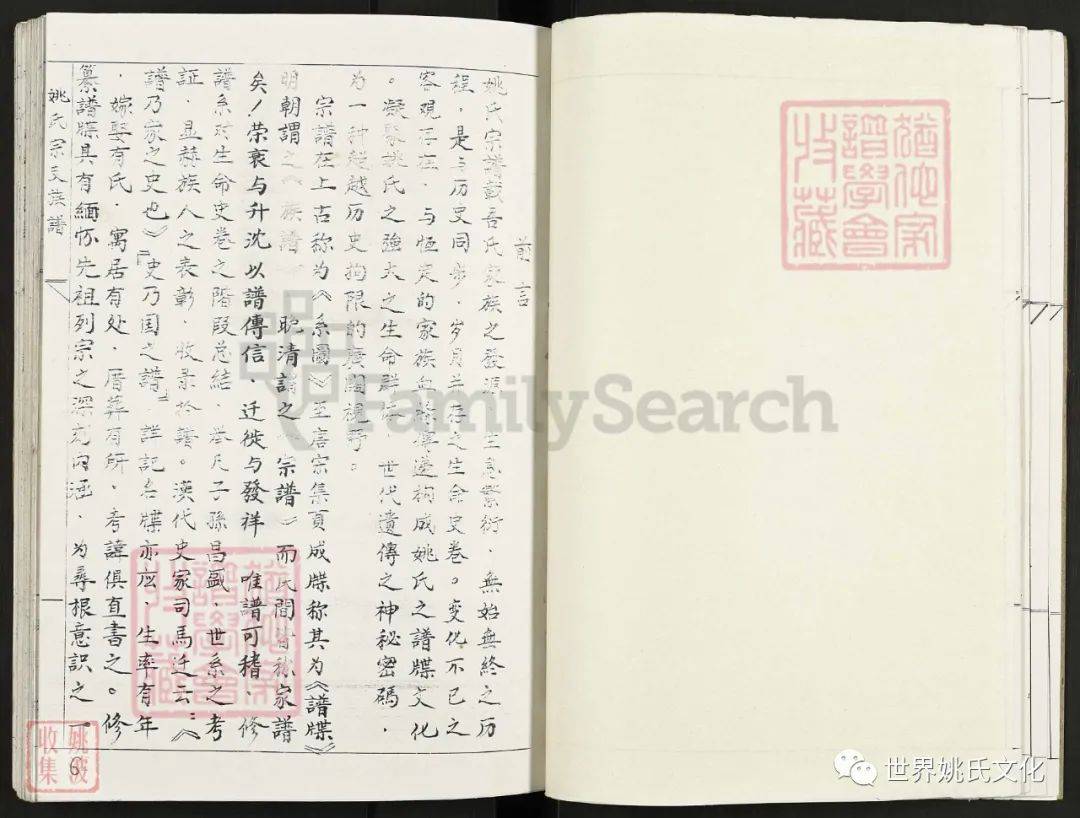 前言
姚氏宗譜載吾氏家族之發源、生息繁衍．無始無終之历
程，是与历史同步．岁月并存之生命史卷。变化不已之
客观存在．与恒定的家族血缘 边构成姚氏之譜牒文化
。凝聚姚氏之強大之生命群体．世代遺傳之神秘密碼．
为一种超越历史拘限的廣闊視野。
宗譜在上古称为《系圖》至唐宗集頁成牒称其为《譜牒》
明朝謂之《族譜 晚清謂之 宗譜》而民間皆称家譜
矣！荣衰与升沈以譜傳信．迁徙与發祥 唯譜可稽．修
譜系对生命史卷之階段总结．举凡子孫昌盛．世系之考
証．显赫族人之表彰．收录拾諸。漢代史家司馬迁云：《
譜乃家之史也》『史乃国之譜』詳記名牒亦应．生率有年
．嫁娶有氏．寓居有处．厝葬有所．考諱俱直書之。修
纂譜牒具有緬怀先祖列宗之深刻内涵．为尋根意識之一
姚氏宗支族譜
6
姚波
收集
猶他家
譜學會
收藏
猶他家
譜學會
收藏
FamilySearch
世界姚氏文化